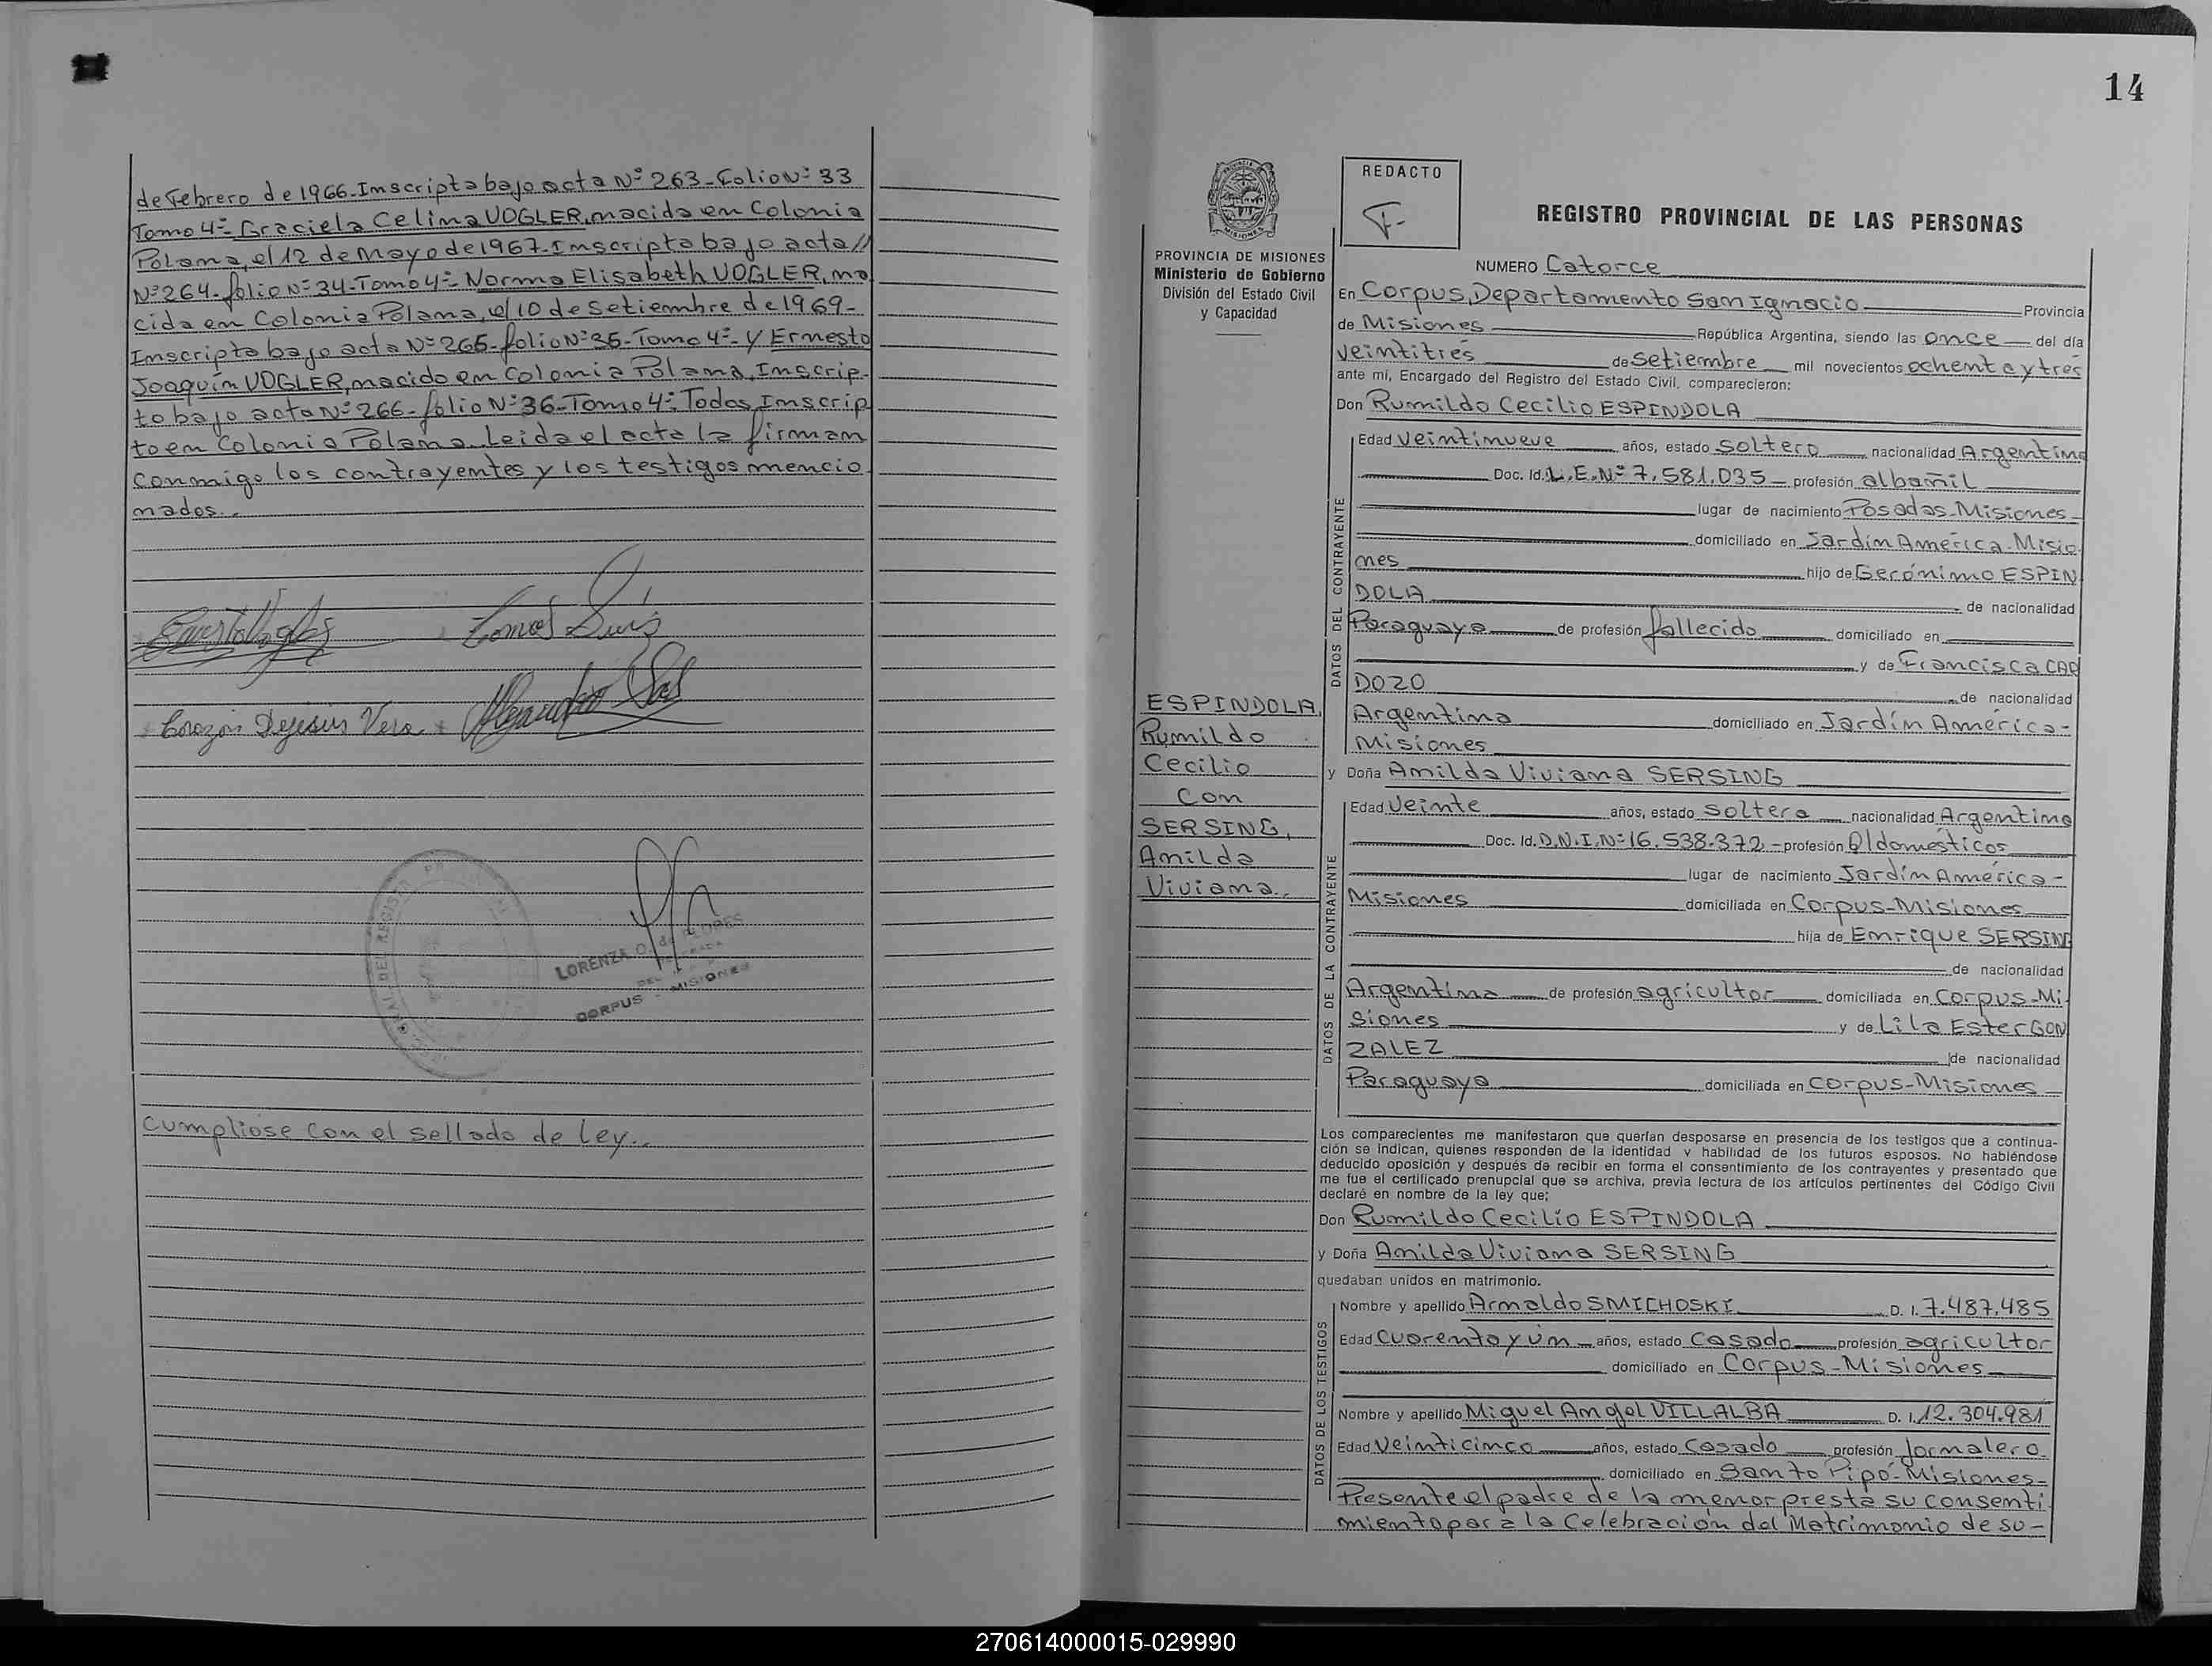 de Febrero de 1966-Inscripta bajo acta Nº 263-Folio Nº 33
Tomo 4º- Graciela Celina VOGLER, nacida en Colonia
Polana, el 12 de Mayo de 1967-Inscripta bajo acta//
Nº 264-folio Nº 34-Tomo 4º- Norma Elisabeth VOGLER, na
cida en Colonia Polana, el 10 de Setiembre de 1969-
Inscripta bajo acta Nº 265-folio Nº 35-Tomo 4º-y Ernesto
Joaquín VOGLER, nacido en Colonia Polana, Inscrip-
to bajo acta Nº 266-folio Nº 36-Tomo 4º; Todos Inscrip
to en Colonia Polana. Leida el acta la firman
conmigo los contrayentes y los testigos mencio
nados.-
Corazón Dejesús Vera
LORENZA O. de FLORES
CORPUS - MISIONES
Cumpliose con el sellado de Ley.-
14
PROVINCIA DE MISIONES
Ministerio de Gobierno
División del Estado Civil
y Capacidad
REDACTO
F-
REGISTRO PROVINCIAL DE LAS PERSONAS
NUMERO Catorce
En Corpus, Departamento San Ignacio Provincia
de Misiones República Argentina, siendo las once del día
veintitrés de setiembre mil novecientos ochenta y tres
ante mí, Encargado del Registro del Estado Civil, comparecieron:
Don Rumildo Cecilio ESPINDOLA
DATOS DEL CONTRAYENTE
Edad veintinueve años, estado soltero nacionalidad Argentina
Doc. Id. L.E.Nº 7.581.035- profesión albañil
lugar de nacimiento Posadas-Misiones-
domiciliado en Jardín América-Misio
nes hijo de Gerónimo ESPIN
DOLA de nacionalidad
Paraguaya de profesión fallecido domiciliado en
y de Francisca CAR
DOZO de nacionalidad
Argentina domiciliado en Jardín América-
Misiones
ESPINDOLA,
Rumildo
Cecilio
con
SERSING,
Amilda
Viviana.-
y Doña Amilda Viviana SERSING
DATOS DE LA CONTRAYENTE
Edad Veinte años, estado soltera nacionalidad Argentina
Doc. Id. D.N.I.Nº 16.538.372.- profesión Q/domésticos
lugar de nacimiento Jardín América-
Misiones domiciliada en Corpus-Misiones
hija de Enrique SERSING
de nacionalidad
Argentina de profesión agricultor domiciliada en Corpus-Mi
siones y de Lila Ester GON
ZALEZ de nacionalidad
Paraguaya domiciliada en Corpus-Misiones
Los comparecientes me manifestaron que querían desposarse en presencia de los testigos que a continua-
ción se indican, quienes responden de la identidad y habilidad de los futuros esposos. No habiéndose
deducido oposición y después de recibir en forma el consentimiento de los contrayentes y presentado que
me fue el certificado prenupcial que se archiva, previa lectura de los artículos pertinentes del Código Civil
declaré en nombre de la ley que;
Don Rumildo Cecilio ESPINDOLA
y Doña Amilda Viviana SERSING
quedaban unidos en matrimonio.
DATOS DE LOS TESTIGOS
Nombre y apellido Arnaldo SMICHOSKI D. I. 7.487.485
Edad Cuarenta y un años, estado Casado profesión agricultor
domiciliado en Corpus-Misiones
Nombre y apellido Miguel Angel VILLALBA D. I. 12.304.981
Edad Veinticinco años, estado Casado profesión Jornalero
domiciliado en Santo Pipó-Misiones-
Presente el padre de la menor presta su consenti
miento para la Celebración del Matrimonio de su-
270614000015-029990